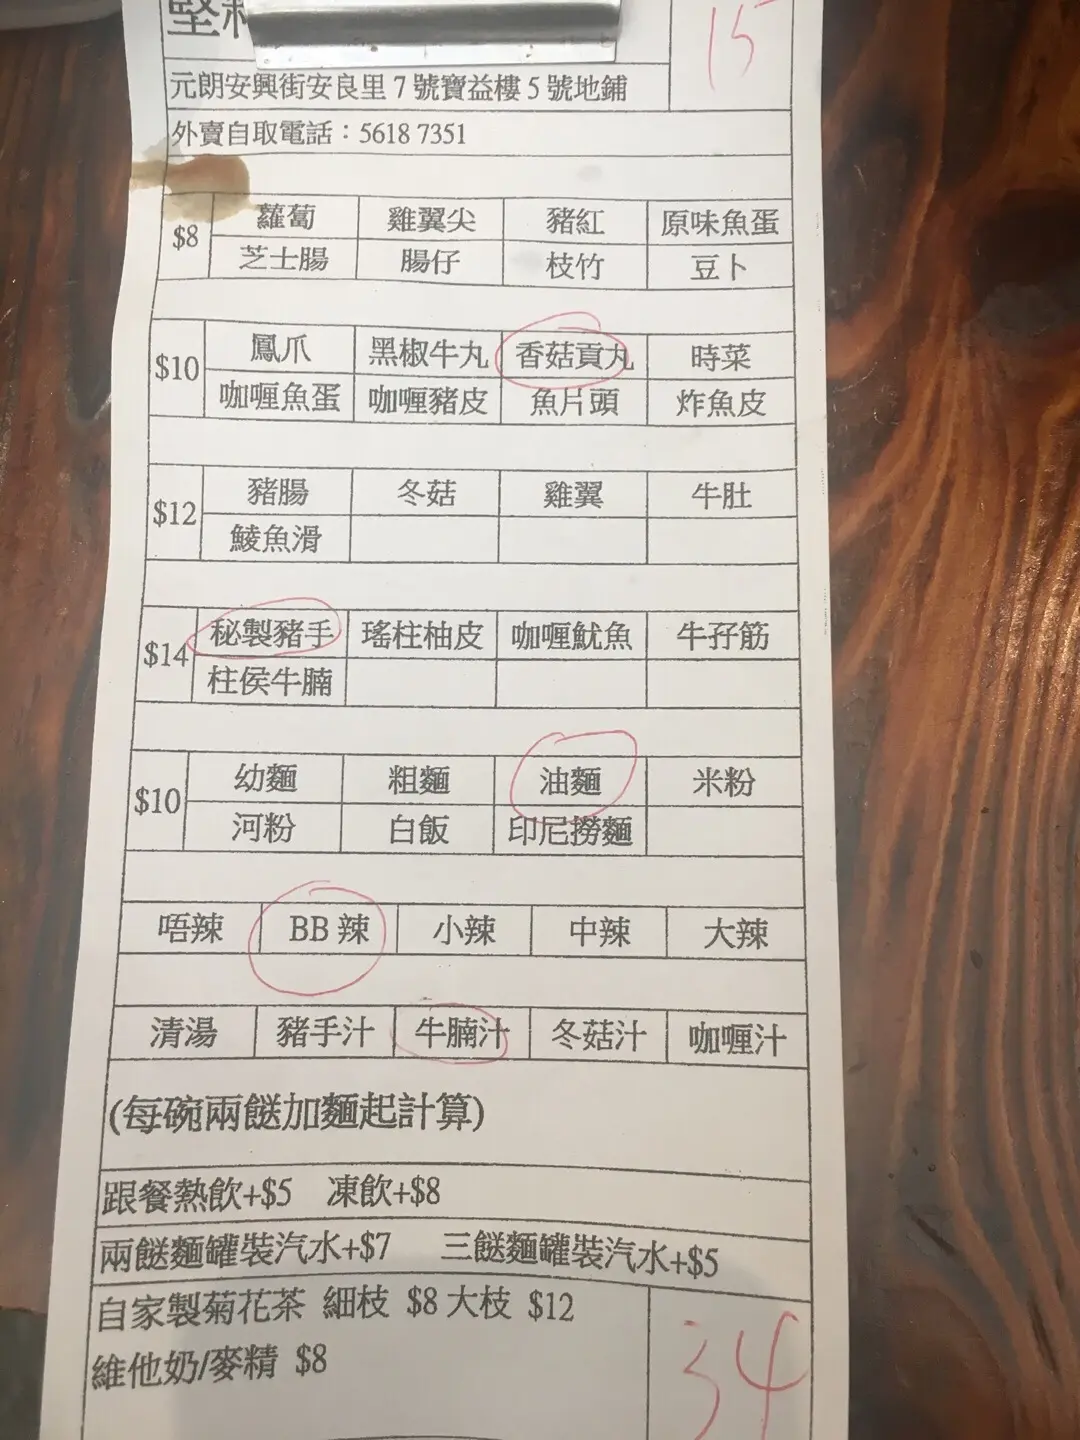 堅
15
元朗安興街安良里 7 號寶益樓 5 號地鋪
外賣自取電話：5618 7351
$8 蘿蔔 雞翼尖 豬紅 原味魚蛋
芝士腸 腸仔 枝竹 豆卜
$10 鳳爪 黑椒牛丸 香菇貢丸 時菜
咖喱魚蛋 咖喱豬皮 魚片頭 炸魚皮
$12 豬腸 冬菇 雞翼 牛肚
鯪魚滑
$14 秘製豬手 瑤柱柚皮 咖喱魷魚 牛孖筋
柱侯牛腩
$10 幼麵 粗麵 油麵 米粉
河粉 白飯 印尼撈麵
唔辣 BB 辣 小辣 中辣 大辣
清湯 豬手汁 牛腩汁 冬菇汁 咖喱汁
(每碗兩餸加麵起計算)
跟餐熱飲+$5 凍飲+$8
兩餸麵罐裝汽水+$7 三餸麵罐裝汽水+$5
自家製菊花茶 細枝 $8 大枝 $12
維他奶/麥精 $8
34